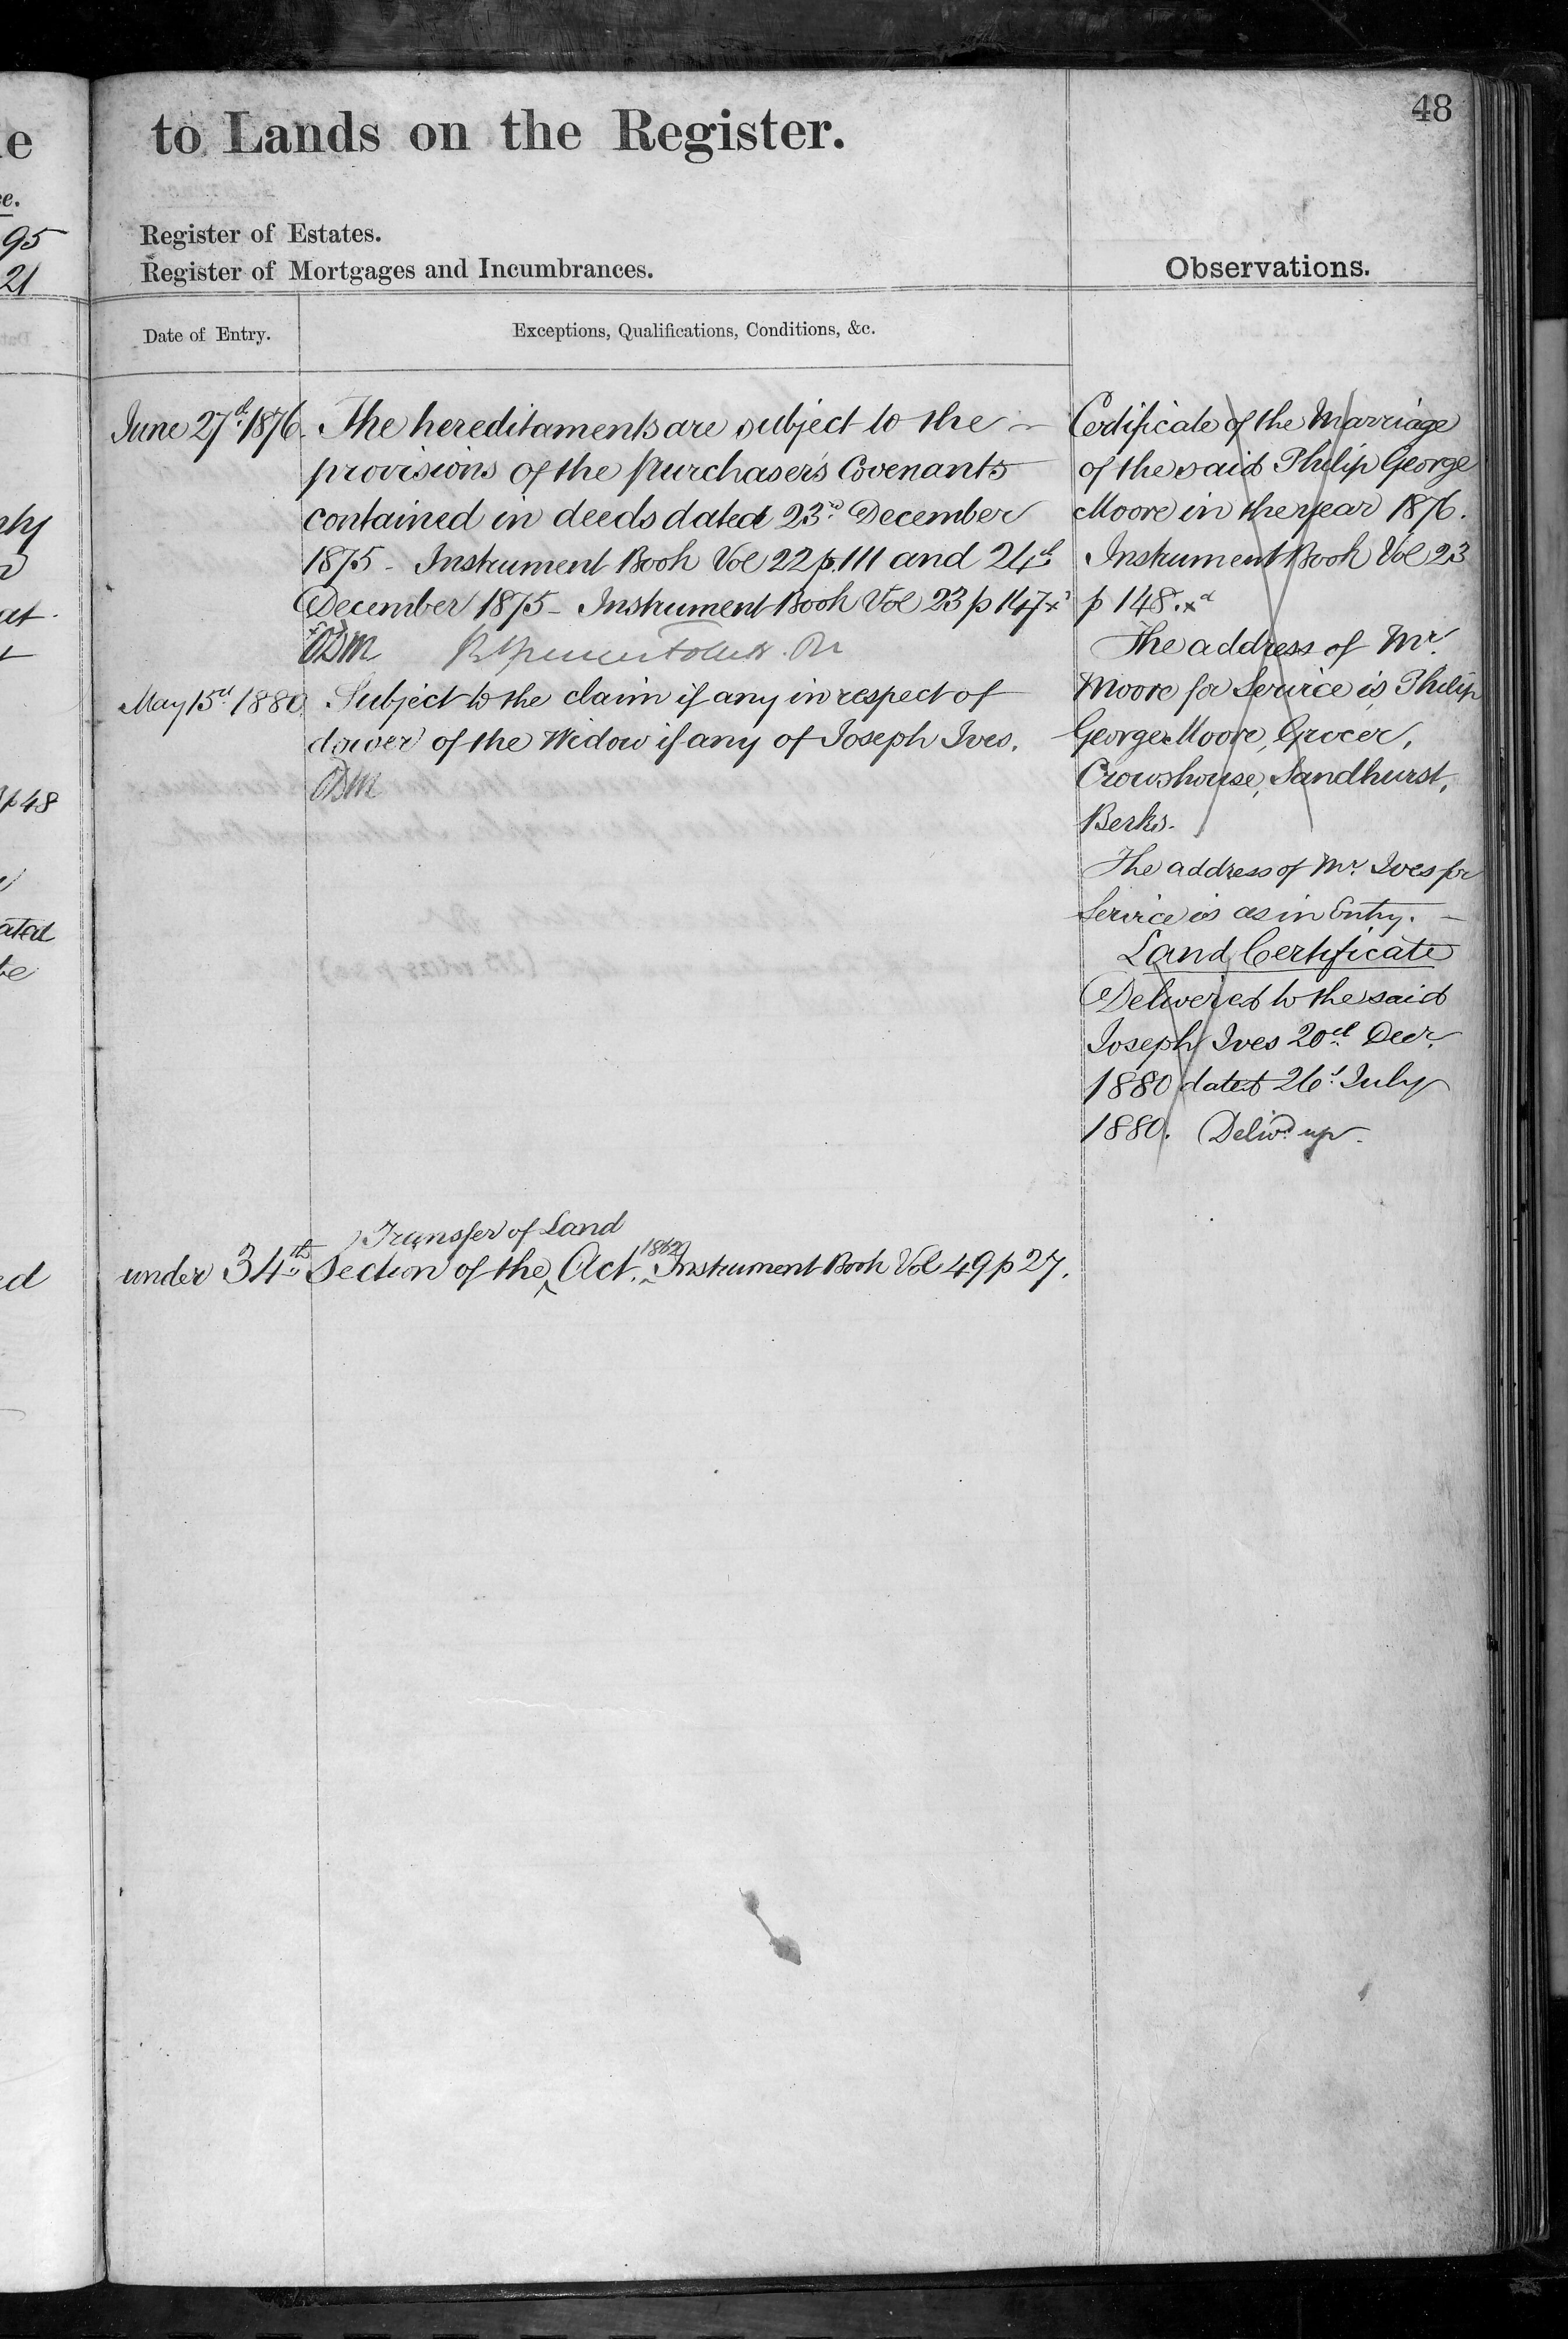 48
to Lands on the Register.
Register of Estates.
Register of Mortgages and Incumbrances.
Observations.
Date of Entry.
Exceptions, Qualifications, Conditions, &c.
June 27th 1876. The hereditaments are subject to the
provisions of the Purchaser's Covenants
contained in deeds dated 23rd December
1875 - Instrument Book Vol 22 p. 111 and 24th
December 1875 - Instrument Book Vol 23 p 147 xd
May 15th 1880 Subject to the claim if any in respect of
dower of the Widow if any of Joseph Ives.
Certificate of the Marriage
of the said Philip George
Moore in the year 1876.
Instrument Book Vol 23
p 148. xd
The address of Mr.
Moore for Service is, Philip
George Moore, Grocer,
Crowshouse, Sandhurst,
Berks.
The address of Mr. Ives for
Service is as in Entry. -
Land Certificate
Delivered to the said
Joseph Ives 20th Decr.
1880 dated 26th July
1880. Delivd up.
Transfer of Land
1862
under 34th Section of the Act. Instrument Book Vol 49 p 27.
e
ce.
95
21
p 48
ated
be
ed